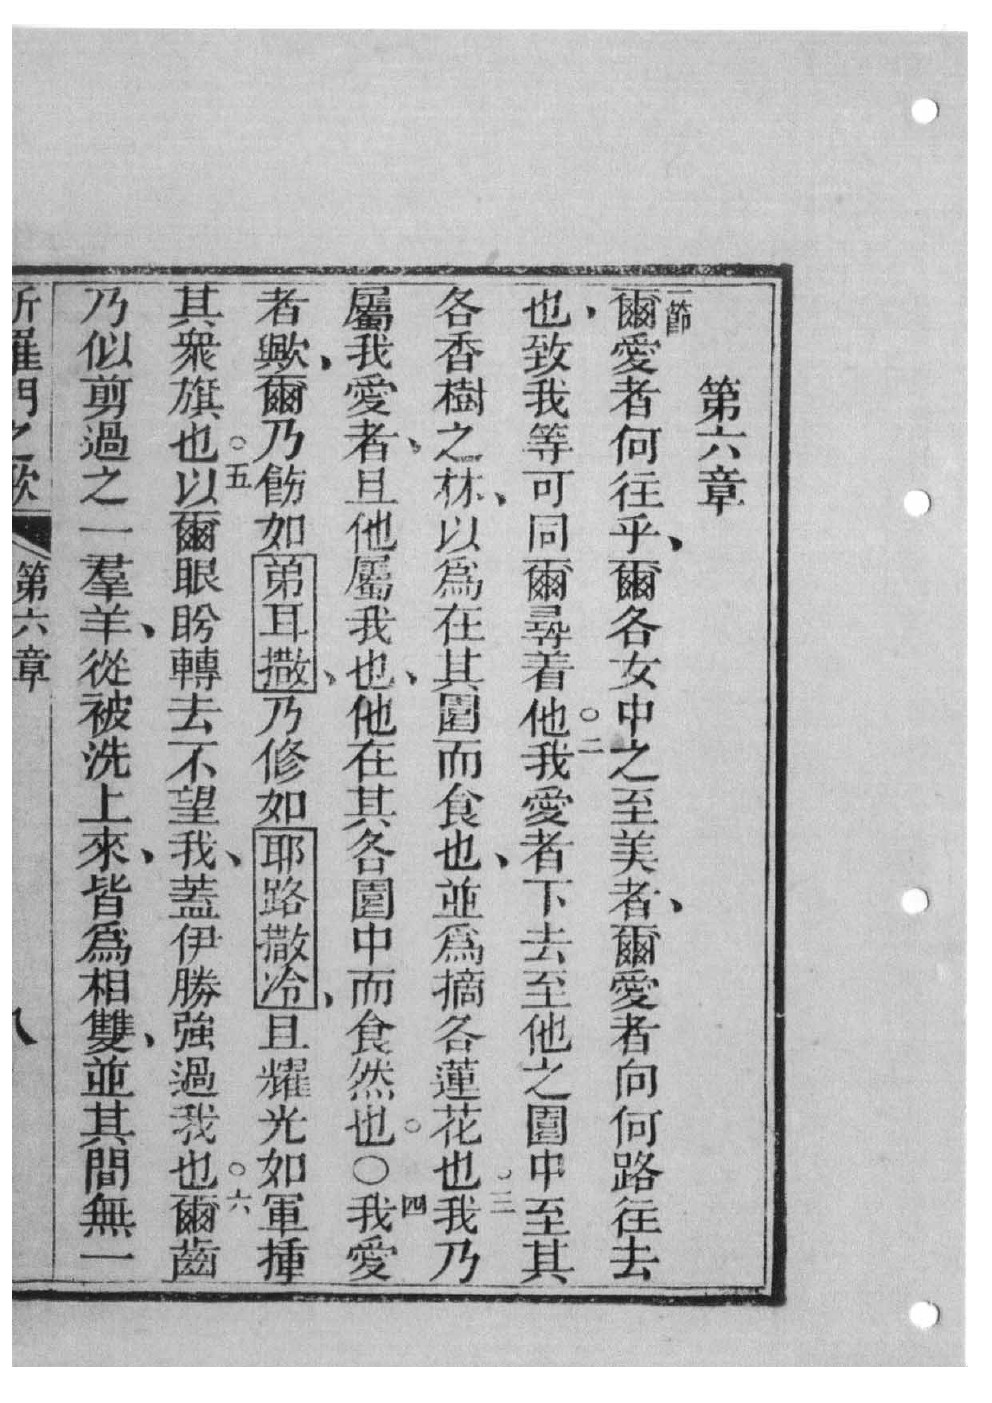 第六章
一節
爾愛者何往乎、爾各女中之至美者、爾愛者向何路往去
也、致我等可同爾尋着他。二我愛者下去至他之園中至其
各香樹之林、以爲在其園而食也、並爲摘各蓮花也。三我乃
屬我愛者、且他屬我也、他在其各園中而食然也。○四我愛
者歟、爾乃飭如第耳撒、乃修如耶路撒冷、且耀光如軍揰
其衆旗也。五以爾眼盼轉去不望我、蓋伊勝強過我也。六爾齒
乃似剪過之一羣羊、從被洗上來、皆爲相雙、並其間無一
所羅門之歌 第六章 八